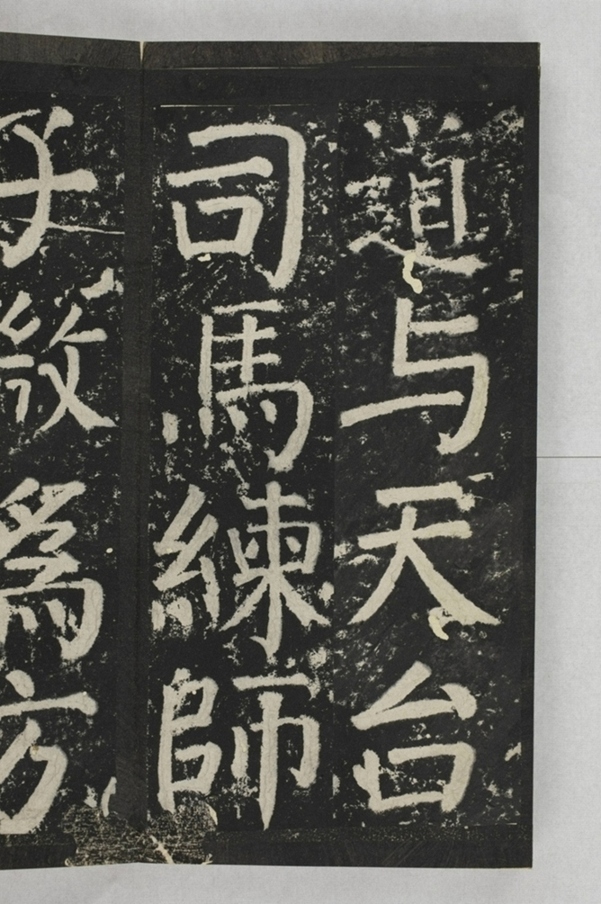 道与天台
司馬練師
子微爲方